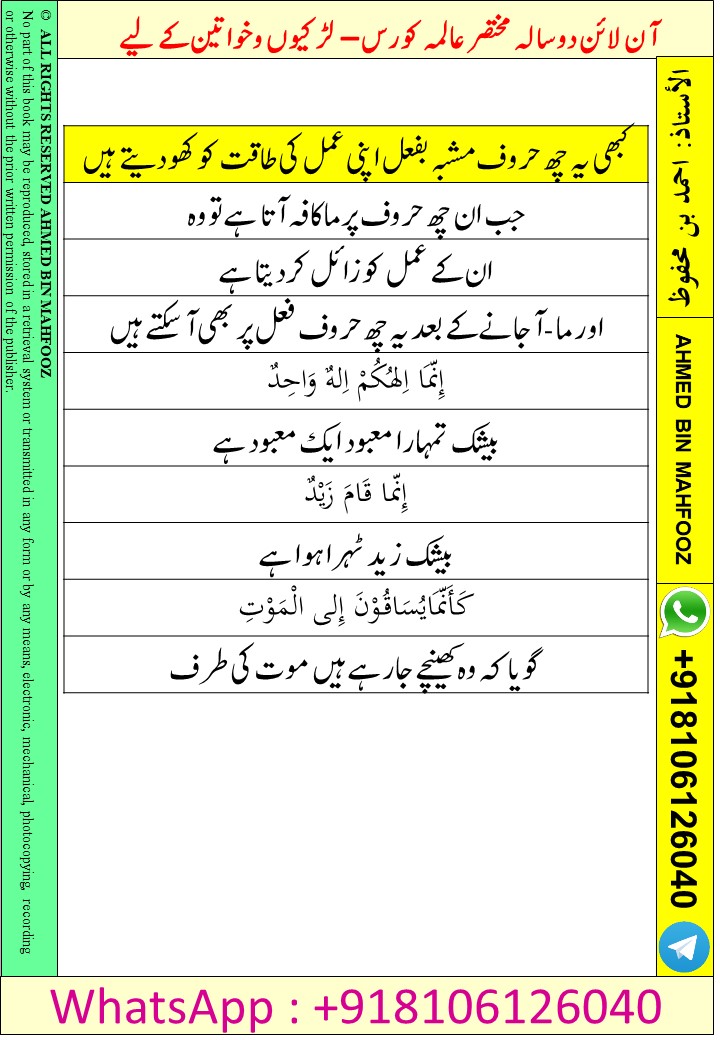 آن لائن دو سالہ مختصر عالمہ کورس – لڑکیوں و خواتین کے لیے
کبھی یہ چھ حروف مشبہ بفعل اپنی عمل کی طاقت کو کھو دیتے ہیں
جب ان چھ حروف پر ما کافہ آتا ہے تو وہ
ان کے عمل کو زائل کر دیتا ہے
اور ما-آ جانے کے بعد یہ چھ حروف فعل پر بھی آ سکتے ہیں
إِنَّمَا اِلٰهُكُمْ اِلٰهٌ وَاحِدٌ
بیشک تمہارا معبود ایک معبود ہے
إِنَّمَا قَامَ زَيْدٌ
بیشک زید ٹہرا ہوا ہے
كَأَنَّمَا يُسَاقُوْنَ إِلى الْمَوْتِ
گویا کہ وہ کھینچے جا رہے ہیں موت کی طرف
الأستاذ: احمد بن محفوظ
AHMED BIN MAHFOOZ
+918106126040
© ALL RIGHTS RESERVED AHMED BIN MAHFOOZ
No part of this book may be reproduced, stored in a retrieval system or transmitted in any form or by any means, electronic, mechanical, photocopying, recording
or otherwise without the prior written permission of the publisher.
WhatsApp : +918106126040